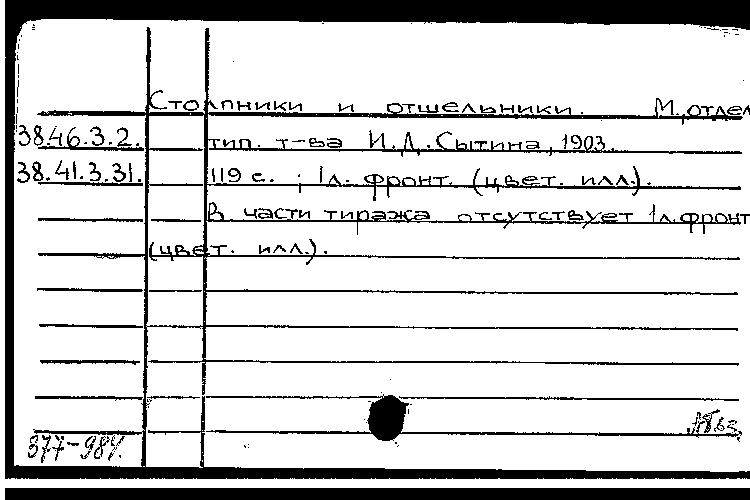 Столпники и отшельники. М., отдел
38.46.3.2. тип. т-ва И.Д. Сытина, 1903.
38.41.3.31. 119 с. ; 1л. фронт. (цвет. илл.).
В части тиража отсутствует 1л. фронт
(цвет. илл.).
377-984.